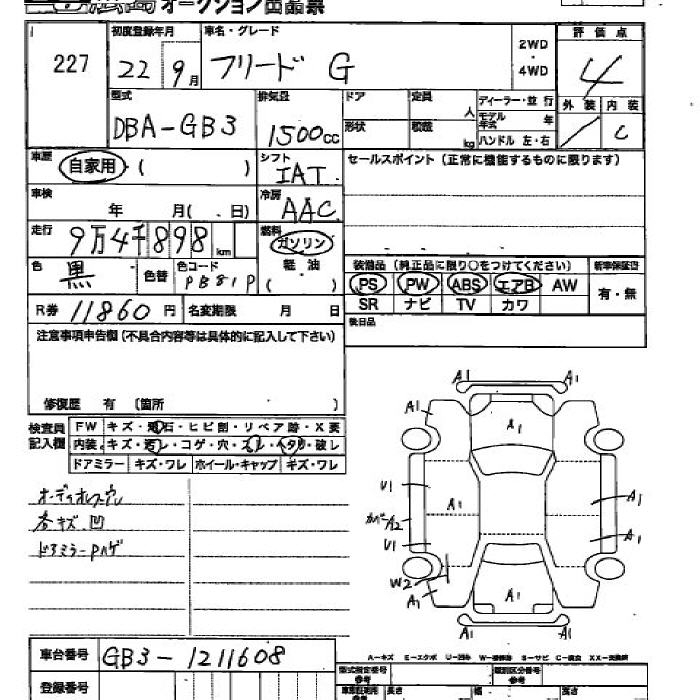 オークション出品票
227
初度登録年月
22 9月
車名・グレード
フリード G
2WD
・
4WD
評価点
4
外装 内装
/ C
型式
DBA-GB3
排気量
1500cc
ドア
定員
人
形状
積載
kg
ディーラー・並行
モデル年式 年
ハンドル 左・右
車歴
自家用・( )
シフト
IAT
セールスポイント(正常に機能するものに限ります)
車検
年 月( . 日)
冷房
AAC
走行
9万4千898km
燃料
ガソリン
軽 油
( )
色
黒
色替
色コード
PB81P
装備品(純正品に限り○をつけてください)
新車保証書
PS PW ABS エアB AW
有・無
SR ナビ TV カワ
R券 11860円
名変期限 月 日
後日品
注意事項申告欄(不具合内容等は具体的に記入して下さい)
修復歴 有 (箇所 )
検査員
記入欄
FW キズ・飛石・ヒビ割・リペア跡・X要
内装 キズ・汚レ・コゲ・穴・スレ・ヘタリ・破レ
ドアミラー キズ・ワレ ホイール・キャップ キズ・ワレ
オーディオレス
各キズ凹
ドアミラーPハゲ
A1 A1
A1
A1
U1
A1
A1
カバーA2
U1
A1
W2
A1
A1
A1 A1
A-キズ E-エクボ U-凹み W-補修跡 S-サビ C-腐食 XX-交換跡
車台番号
GB3-1211608
登録番号
型式指定番号
参考
類別区分番号
参考
長さ
幅
高さ